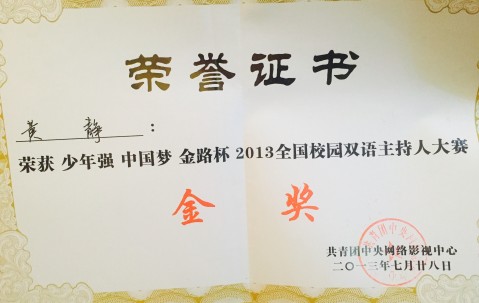 荣誉证书
黄 静：
荣获 少年强 中国梦 金路杯 2013全国校园双语主持人大赛
金奖
共青团中央网络影视中心
二〇一三年七月廿八日